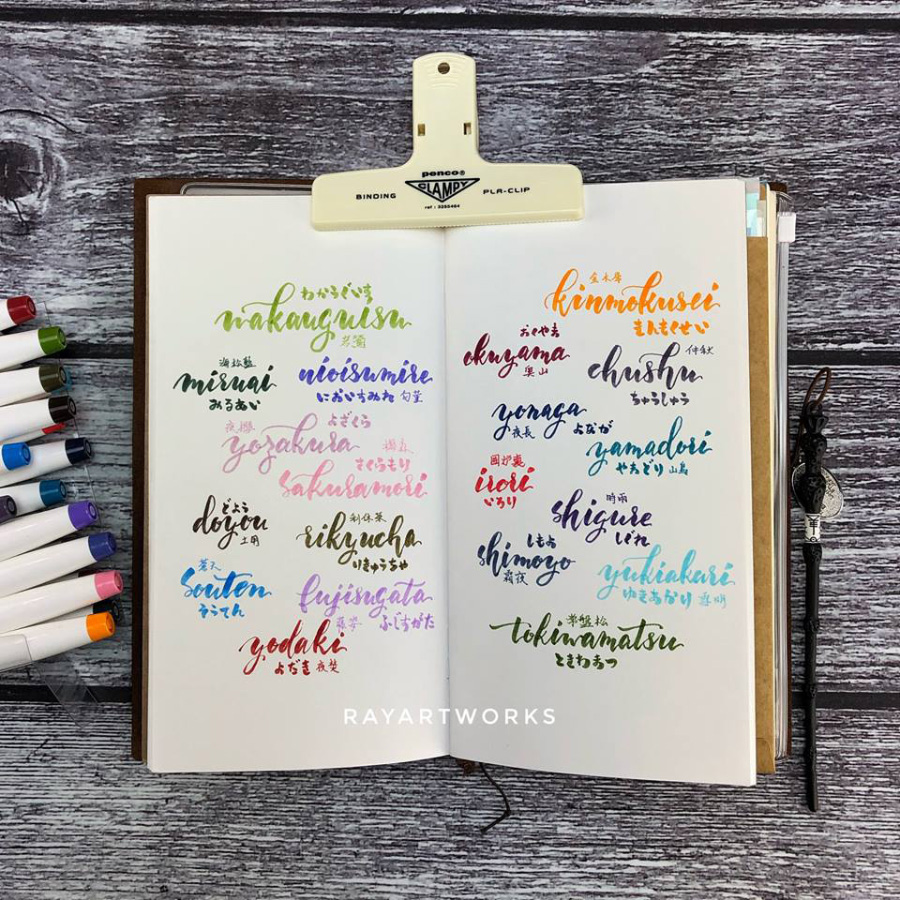 penco®
BINDING CLAMPY PLA-CLIP
わかうぐいす
wakauguisu
若鶯
海松藍
miruai
みるあい
nioisumire
においすみれ 匂菫
よざくら
夜櫻
yozakura
sakuramori
さくらもり
どよう
doyou
土用
利休茶
rikyucha
りきゅうちゃ
蒼天
souten
そうてん
fujisugata
藤姿 ふじすがた
yodaki
よだき 夜焚
金木犀
kinmokusei
きんもくせい
おくやま
okuyama
奥山
仲秋
chushu
ちゅうしゅう
yonaga
夜長 よなが
yamadori
やまどり 山鳥
irori
いろり
時雨
shigure
しぐれ
しもよ
shimoyo
霜夜
yukiakari
ゆきあかり
常盤松
tokiwamatsu
ときわまつ
RAYARTWORKS